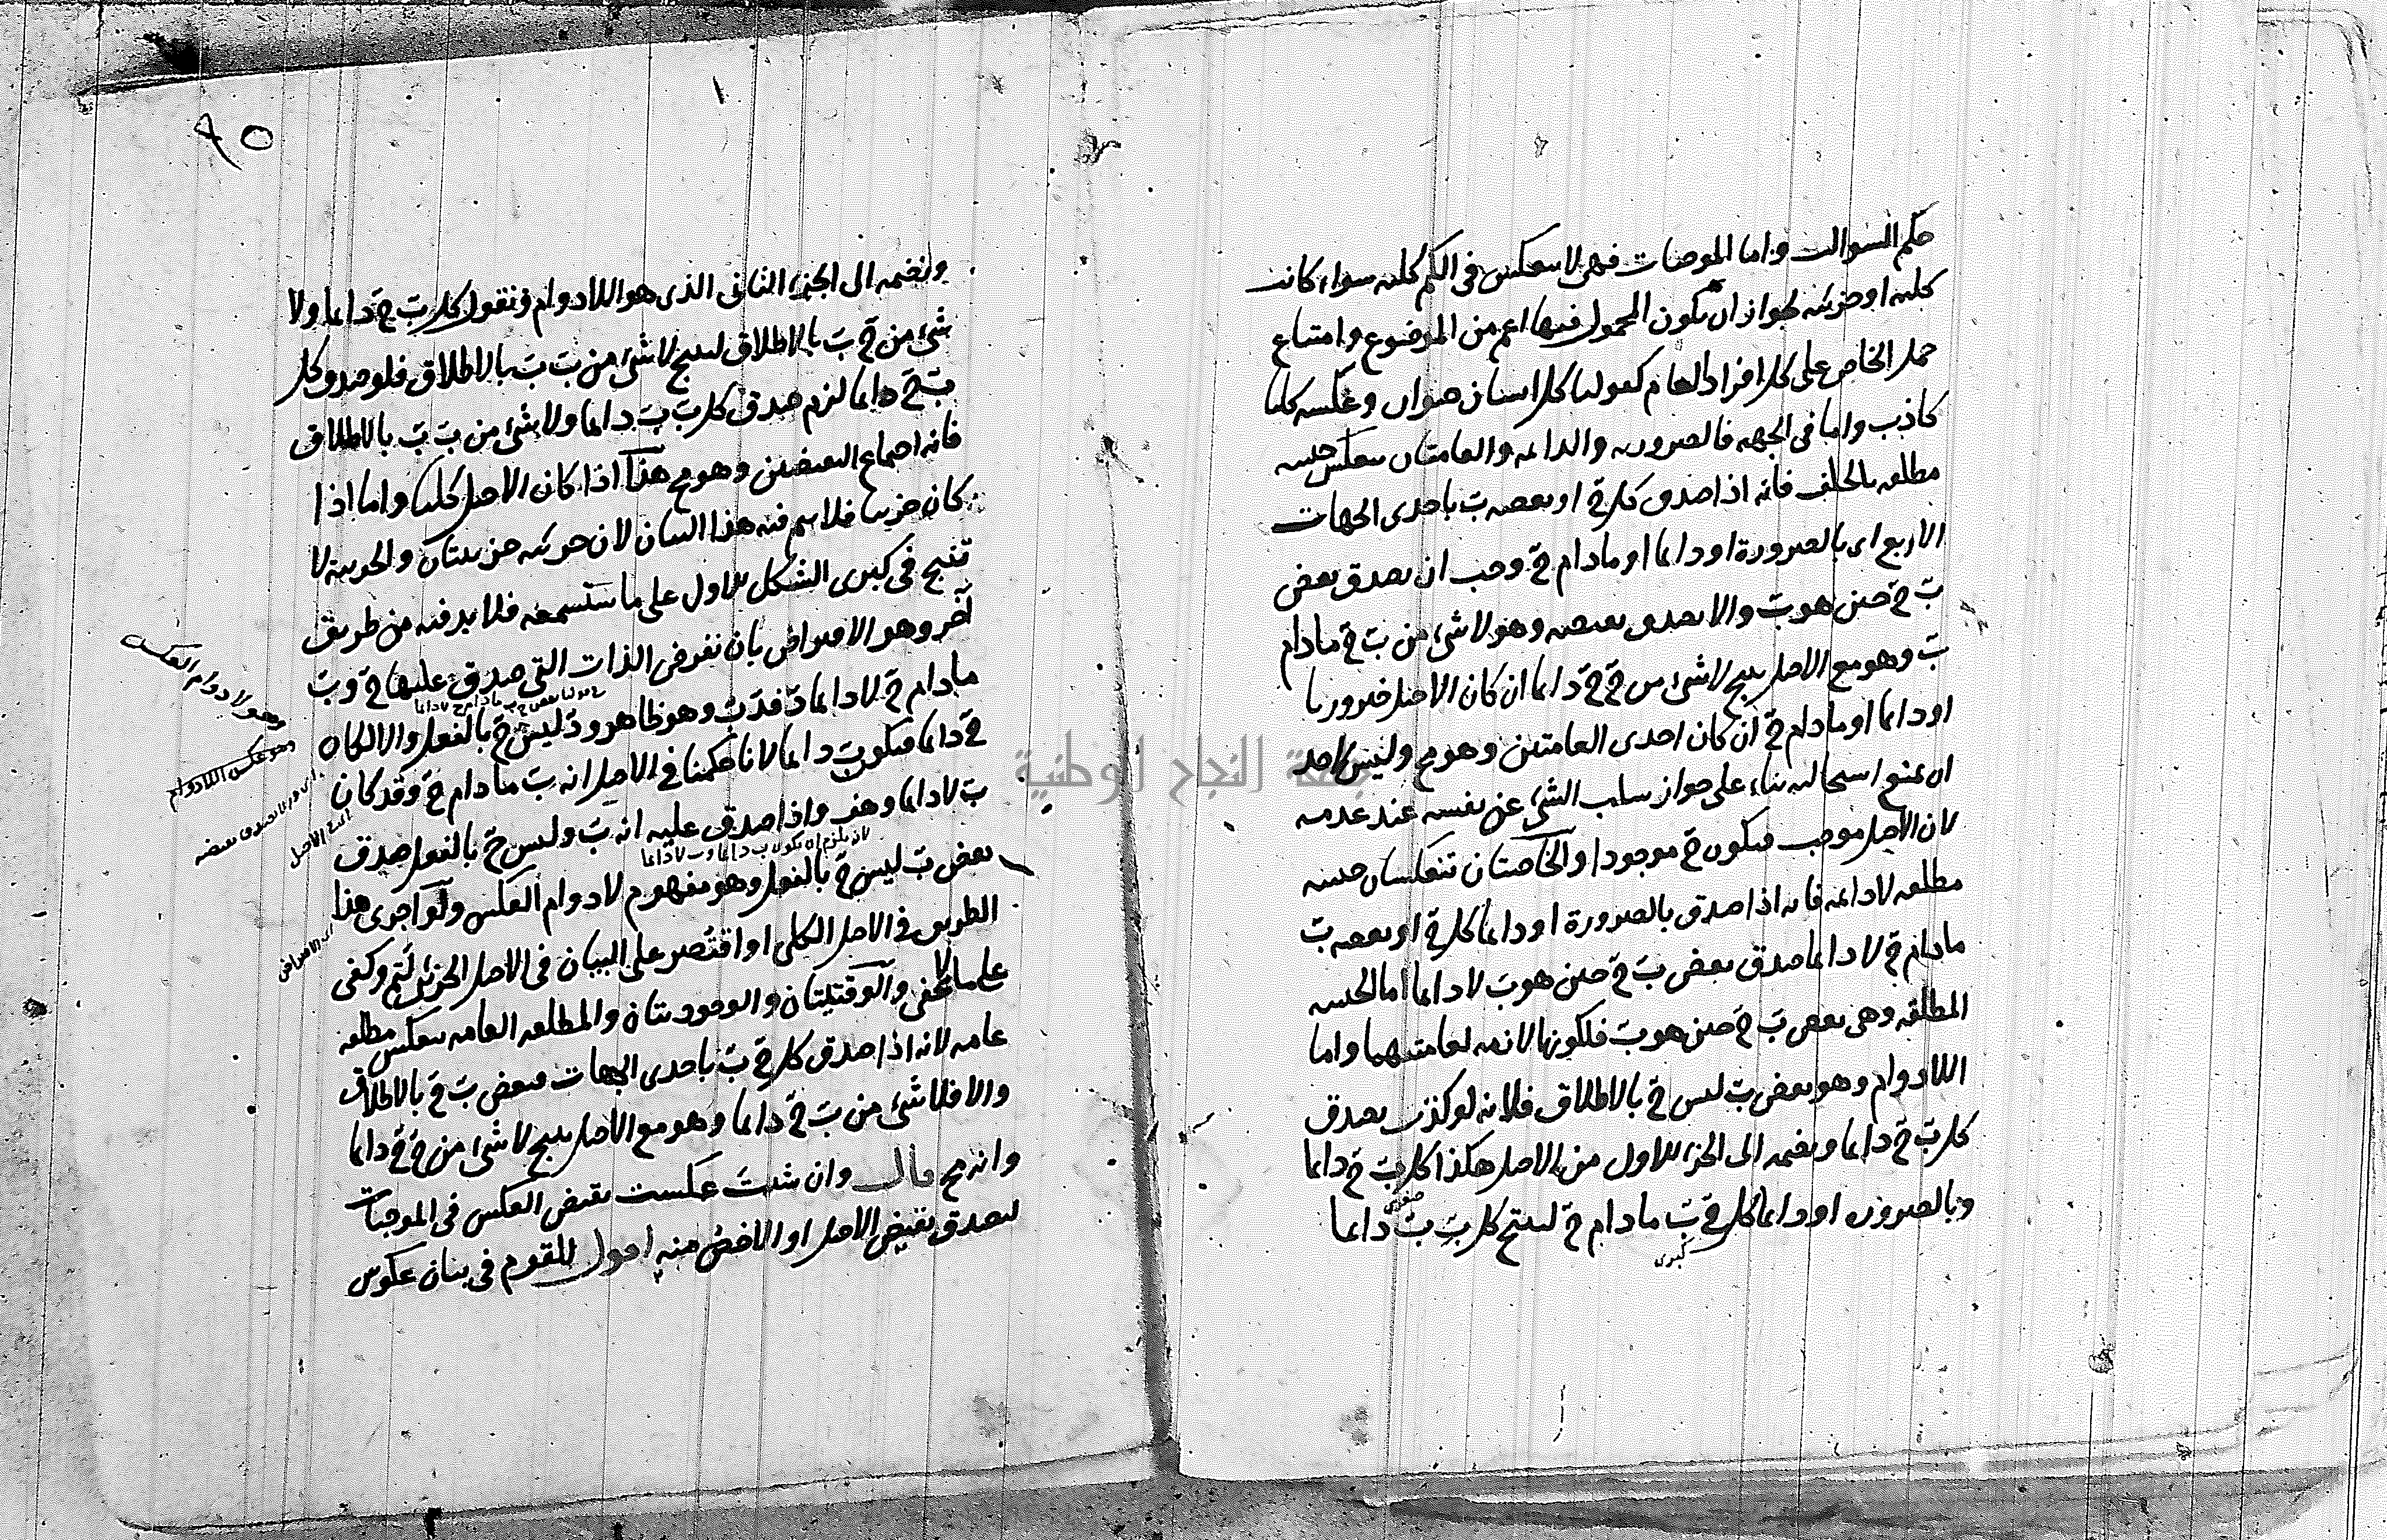 حكم السوالب واما الموجبات فهى لا تنعكس فى الكم كلية سواء كانت
كلية او جزئية لجواز ان يكون المحمول فيها اعم من الموضوع وامتناع
حمل الخاص على كل افراد العام كقولنا كل انسان حيوان وعكسه كليا
كاذب واما فى الجهة فالضرورية والدائمة والعامتان تنعكس حينية
مطلقة بالخلف فانه اذا صدق كل ج او بعضه ب باحدى الجهات
الاربع اى بالضرورة او دائما او مادام ج وجب ان يصدق بعض
ب ج حين هو ب والا لصدق نقيضه وهو لا شئ من ب ج مادام
ب وهو مع الاصل ينتج لا شئ من ج ج دائما ان كان الاصل ضروريا
او دائما او مادام ج ان كان احدى العامتين وهو مح وليس لاحد
ان يمنع استحالته بناء على جواز سلب الشئ عن نفسه عند عدمه
لان الاصل موجب فيكون ج موجودا والخاصتان تنعكسان حينية
مطلقة لا دائمة فانه اذا صدق بالضرورة او دائما كل ج او بعضه ب
مادام ج لا دائما صدق بعض ب ج حين هو ب لا دائما اما الحينية
المطلقة وهى بعض ب ج حين هو ب فلكونها لازمة لعامتيهما واما
اللادوام وهو بعض ب ليس ج بالاطلاق فلانه لو كذب لصدق
كل ب ج دائما ونضمه الى الجزء الاول من الاصل هكذا كل ب ج دائما
وبالضرورة او دائما كل ج ب مادام ج لينتج كل ب ب دائما
كبرى
٩٥
ونضمه الى الجزء الثانى الذى هو اللادوام ونقول كل ب ج دائما ولا
شئ من ج ب بالاطلاق لينتج لا شئ من ب ب بالاطلاق فلو صدق كل
ب ج دائما لزم صدق كل ب ب دائما ولا شئ من ب ب بالاطلاق
فانه اجتماع النقيضين وهو مح هذا اذا كان الاصل كليا واما اذا
كان جزئيا فلا يتم فيه هذا البيان لان جزئيه جزئيتان والجزئية لا
تنتج فى كبرى الشكل الاول على ما ستسمعه فلا بد فيه من طريق
آخر وهو الافتراض بان نفرض الذات التى صدق عليها ج وب
مادام ج لا دائما د فد ب وهو ظاهر ود ليس ج بالفعل والا لكان
ج دائما فيكون ب دائما لانا حكمنا فى الاصل انه ب مادام ج وقد كان
ب لا دائما وهف واذا صدق عليه انه ب وليس ج بالفعل صدق
لانه يلزم ان يكون ب دائما وب لا دائما
بعض ب ليس ج بالفعل وهو مفهوم لا دوام العكس ولو اجرى هذا
الطريق فى الاصل الكلى او اقتصر على البيان فى الاصل الجزئى لتم وكفى
على ما لا يخفى والوقتيتان والوجوديتان والمطلقة العامة تنعكس مطلقة
عامة لانه اذا صدق كل ج ب باحدى الجهات فبعض ب ج بالاطلاق
والا فلا شئ من ب ج دائما وهو مع الاصل ينتج لا شئ من ج ج دائما
وانه مح قال وان شئت عكست نقيض العكس فى الموجبات
ليصدق نقيض الاصل او الاخص منه اقول للقوم فى بيان عكوس
وهو لا دوام العكس
وهو عكس اللادوام
اى الافتراض